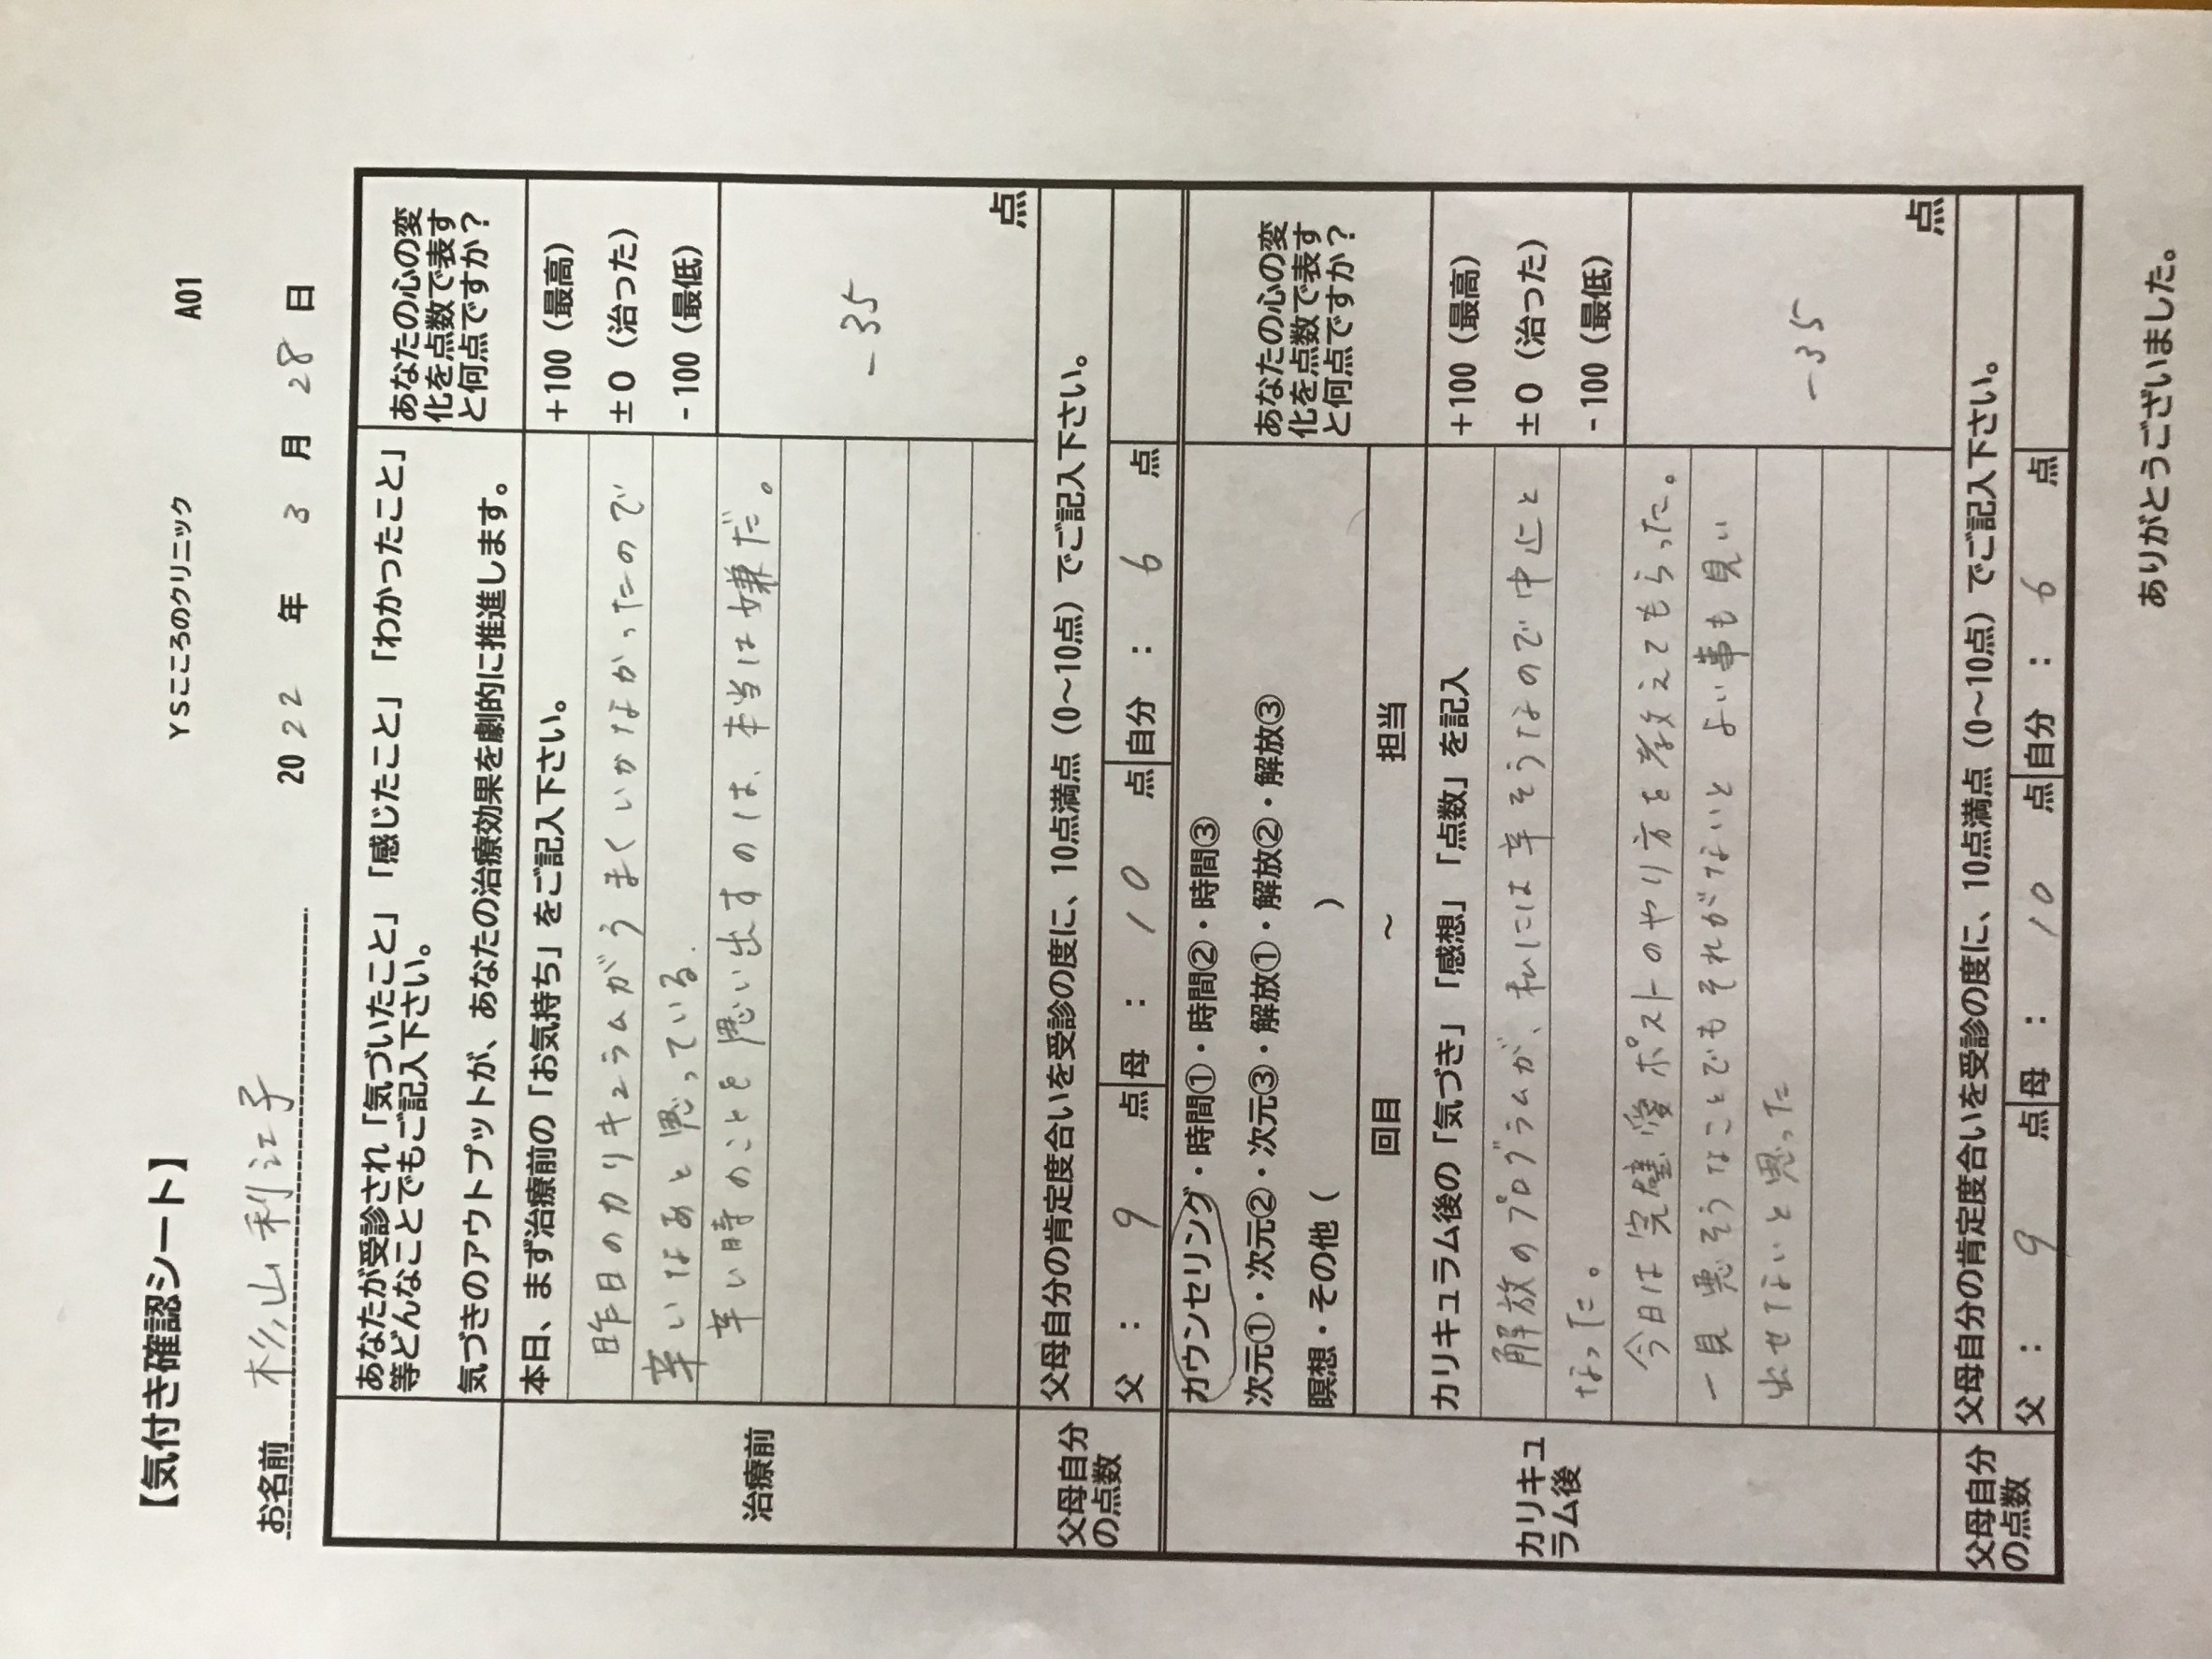 【気付き確認シート】
YSこころのクリニック A01
お名前 杉山利江子 2022年3月28日
あなたが受診され「気づいたこと」「感じたこと」「わかったこと」
等どんなことでもご記入下さい。
気づきのアウトプットが、あなたの治療効果を劇的に推進します。
あなたの心の変
化を点数で表す
と何点ですか？
治療前
本日、まず治療前の「お気持ち」をご記入下さい。
+100（最高）
±0（治った）
-100（最低）
昨日のカリキュラムがうまくいかなかったので
辛いなあと思っている.
辛い時のことを思い出すのは、本当は嫌だ。
-35
点
父母自分
の点数
父母自分の肯定度合いを受診の度に、10点満点（0～10点）でご記入下さい。
父 : 9 点 母 : 10 点 自分 : 6 点
カリキュ
ラム後
カウンセリング・時間①・時間②・時間③
次元①・次元②・次元③・解放①・解放②・解放③
瞑想・その他（ ）
あなたの心の変
化を点数で表す
と何点ですか？
回目 ～ 担当
カリキュラム後の「気づき」「感想」「点数」を記入
+100（最高）
±0（治った）
-100（最低）
解放のプログラムが、私には辛そうなので中止と
なった。
今日は完璧愛ポストのやり方を教えてもらった。
一見悪そうなことでもそれがないとよい事も見い
出せないと思った
-35
点
父母自分
の点数
父母自分の肯定度合いを受診の度に、10点満点（0～10点）でご記入下さい。
父 : 9 点 母 : 10 点 自分 : 6 点
ありがとうございました。